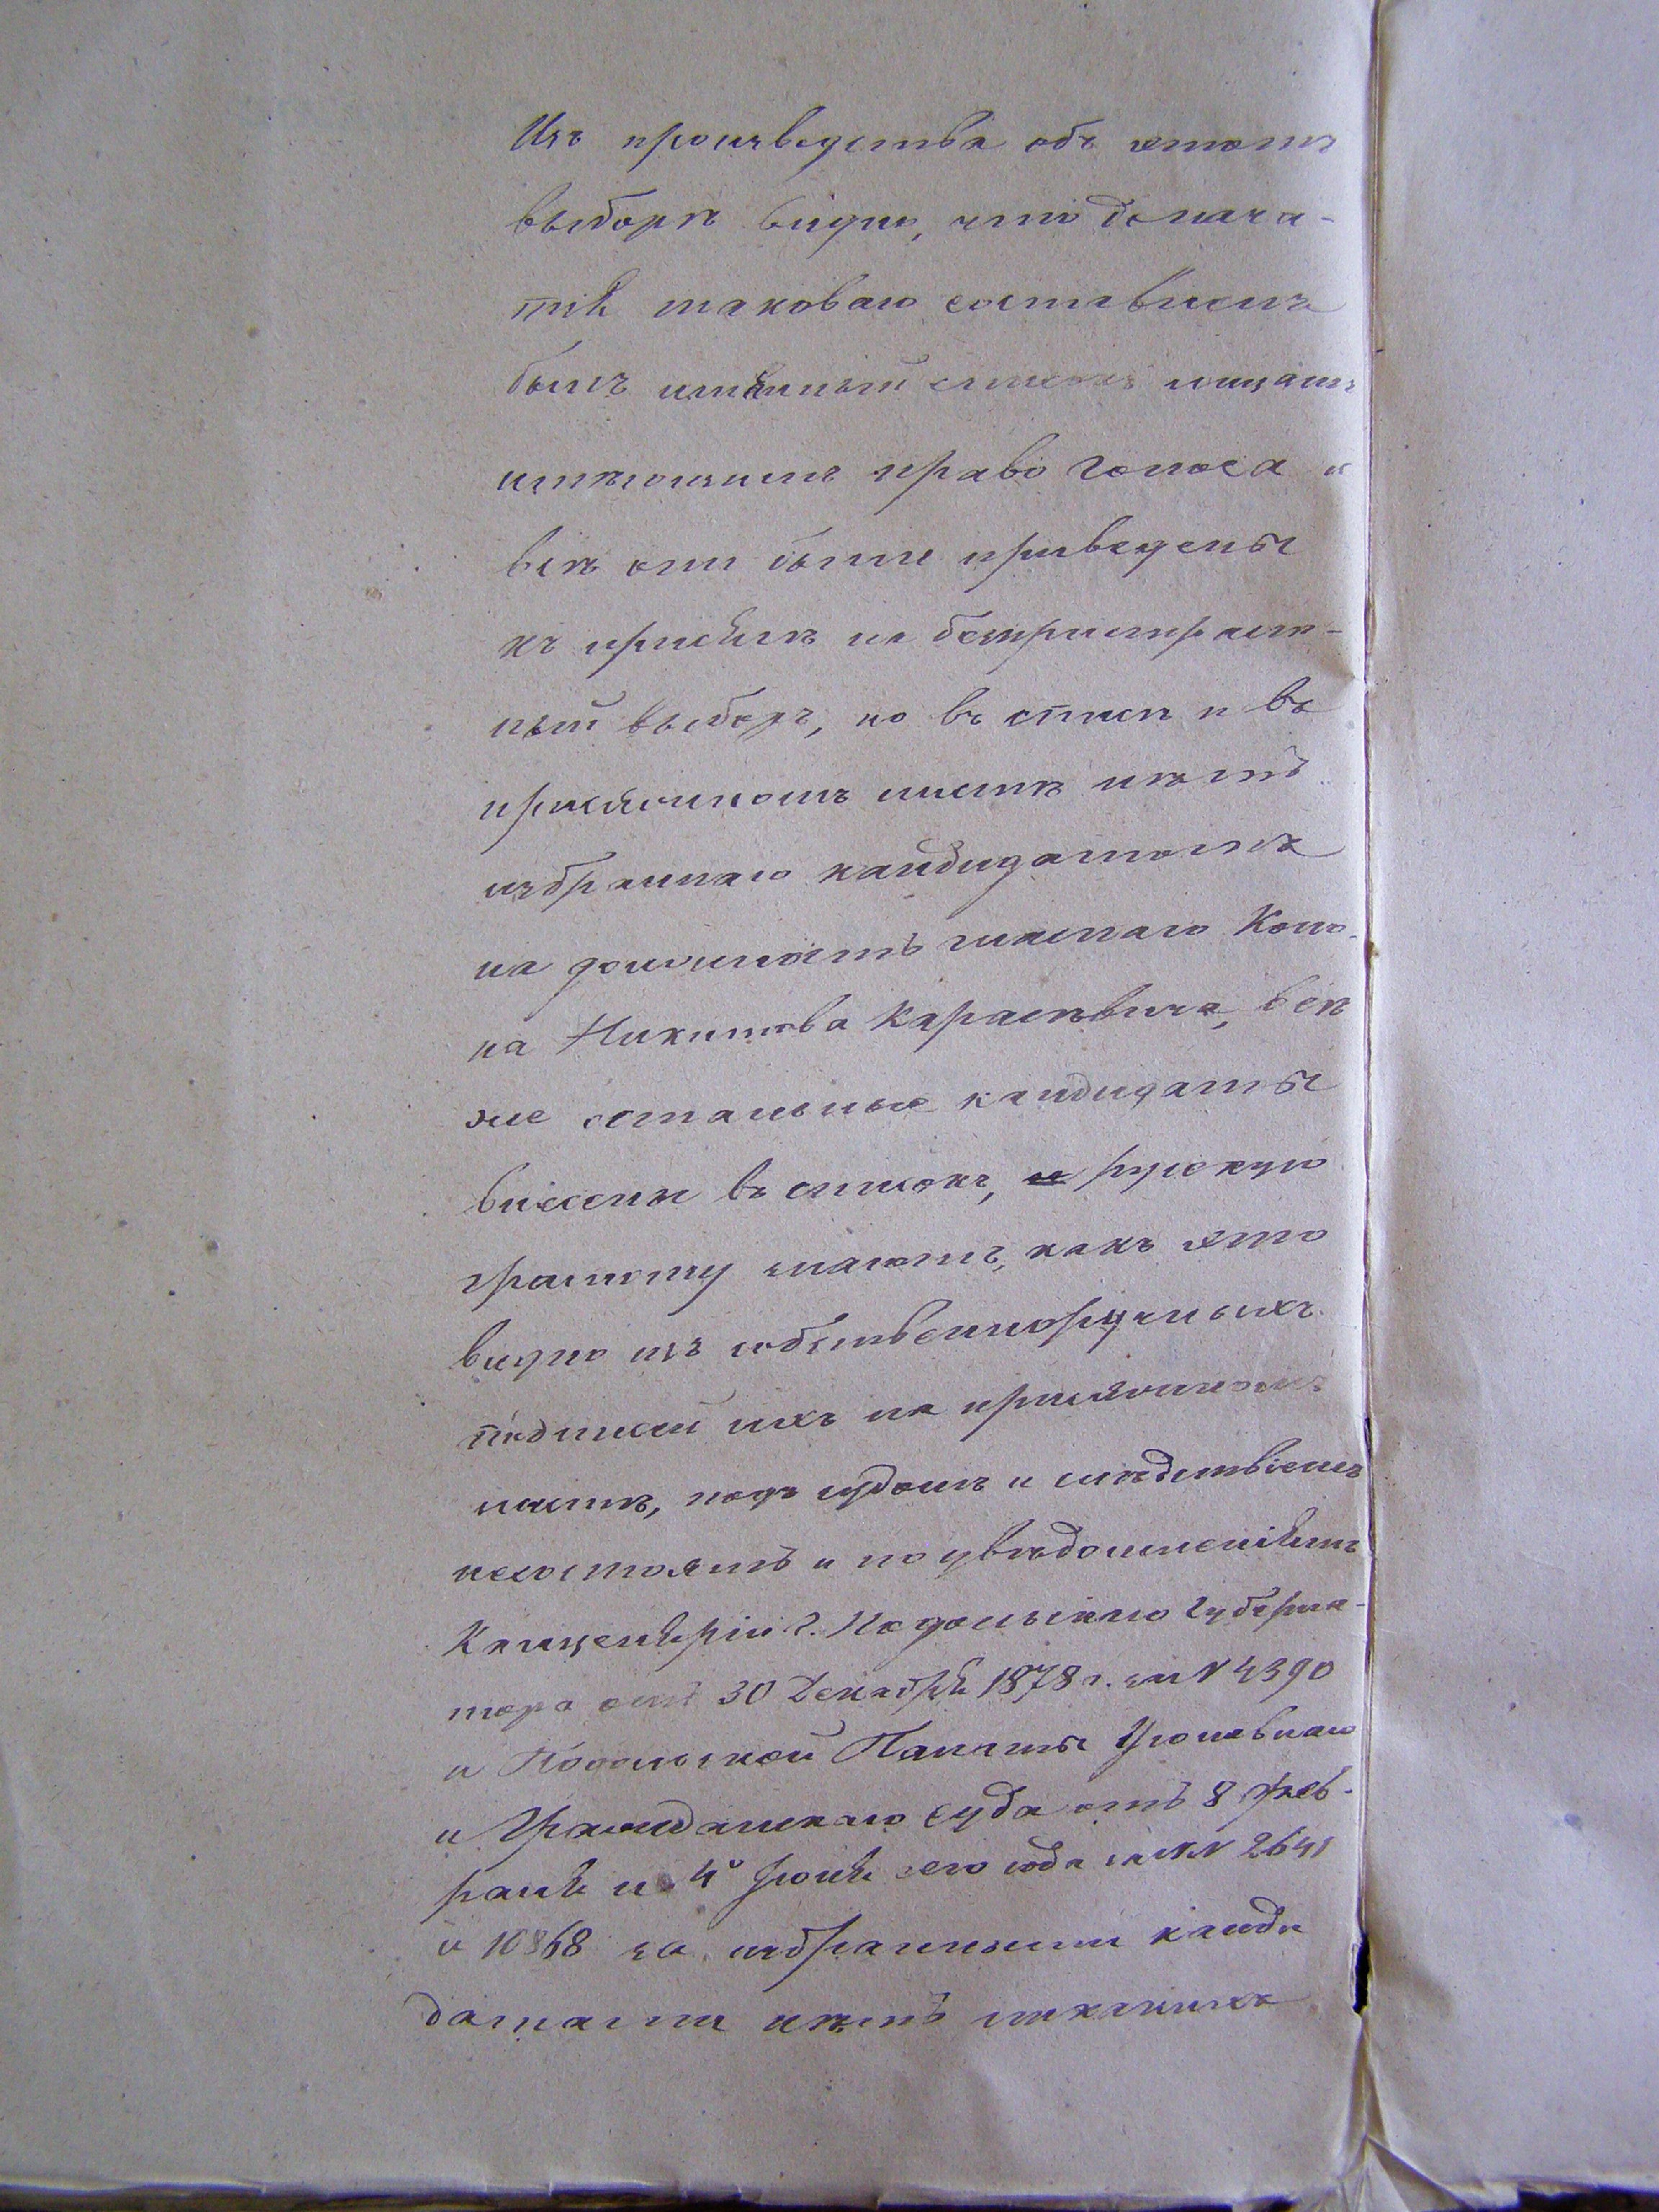 Изъ производства объ этомъ
выборѣ видно, что до нача-
тія таковаго составленъ
былъ имянный списокъ лицамъ
имѣющимъ право голоса и
всѣ они были приведены
къ присягѣ на безпристраст-
ный выборъ, но въ спискѣ и въ
присяжномъ листѣ нѣтъ
избраннаго кандидатомъ
на должность гласнаго Коно-
на Никитова Карасѣвича, всѣ
же остальные кандидаты
внесены въ списокъ, русскую
грамоту знаютъ, какъ это
видно изъ собственноручныхъ
подписей ихъ на присяжномъ
листѣ, подъ судомъ и слѣдствіемъ
несостоятъ и по увѣдомленіямъ
Канцеляріи г. Подольскаго Губерна-
тора отъ 30 Декабря 1878 г. за N 4390
и Подольской Палаты Уголовнаго
и Гражданскаго суда отъ 8 Фев-
раля и 4º Іюня сего года за NN 2641
и 10868 за избранными канди
датами нѣтъ никакихъ